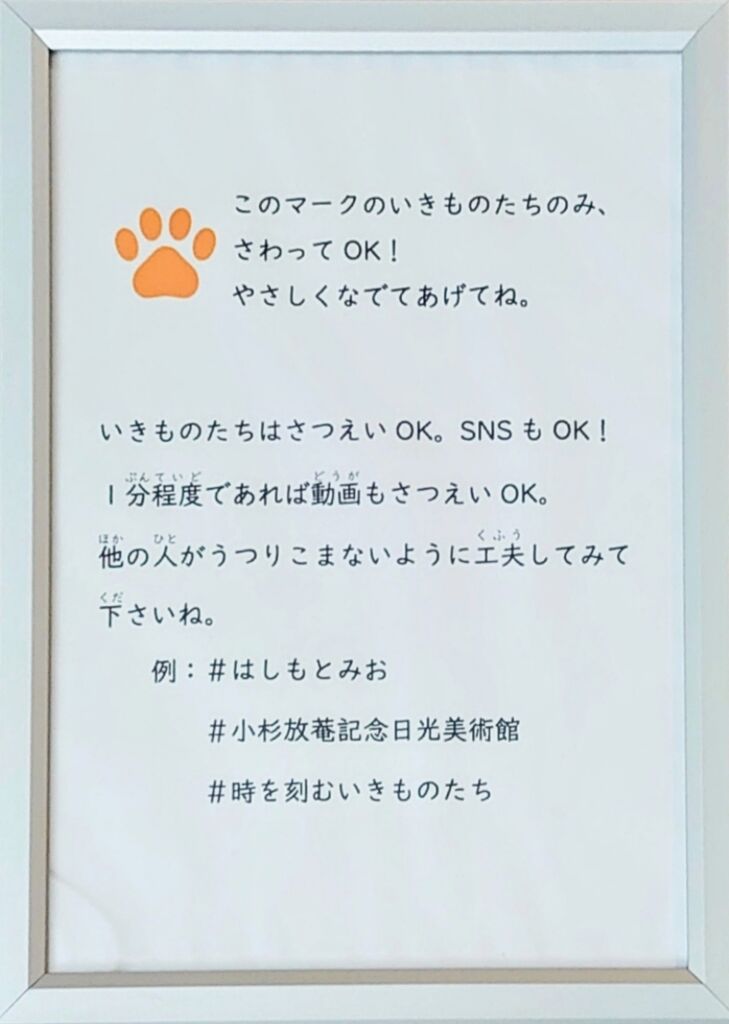 このマークのいきものたちのみ、
さわって OK！
やさしくなでてあげてね。
いきものたちはさつえい OK。SNS も OK！
ぷんていど どうが
1分程度であれば動画もさつえい OK。
ほか ひと くふう
他の人がうつりこまないように工夫してみて
くだ
下さいね。
例：＃はしもとみお
＃小杉放菴記念日光美術館
＃時を刻むいきものたち